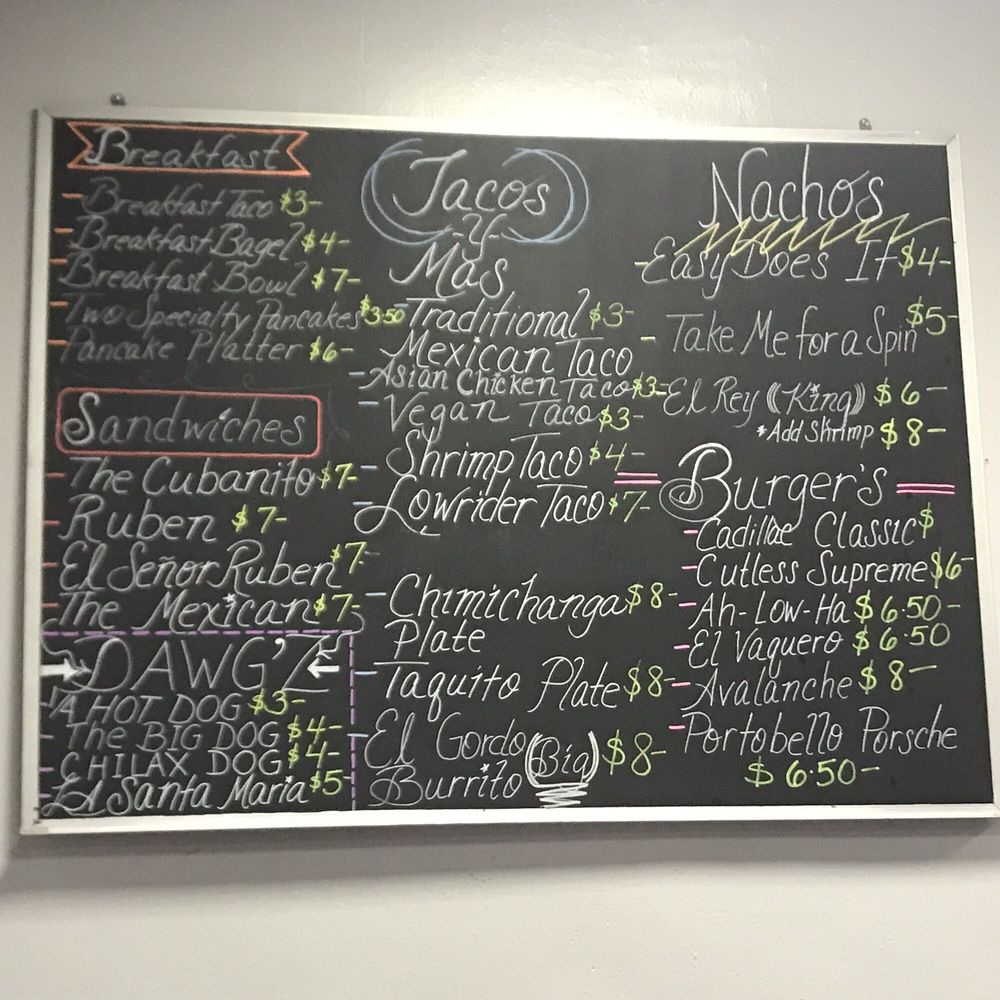 Breakfast
Breakfast Taco $3-
Breakfast Bagel $4-
Breakfast Bowl $7-
Two Specialty Pancakes $3.50
Pancake Platter $6-
Sandwiches
The Cubanito $7-
Ruben $7-
El Señor Ruben $7-
The Mexican $7-
DAWG'Z
A HOT DOG $3-
The BIG DOG $4-
CHILAX DOG $4-
LA Santa Maria $5-
Tacos
-y-
Mas
Traditional $3-
Mexican Taco
Asian Chicken Taco $3-
Vegan Taco $3-
Shrimp Taco $4-
Lowrider Taco $7-
Chimichanga $8-
Plate
Taquito Plate $8-
El Gordo (Big) $8-
Burrito
Nachos
Easy Does It $4-
Take Me for a Spin $5-
El Rey ((King)) $6-
*Add Shrimp $8-
Burger's
Cadillac Classic $
Cutless Supreme $6-
Ah-Low-Ha $6.50-
El Vaquero $6.50
Avalanche $8-
Portobello Porsche
$6.50-